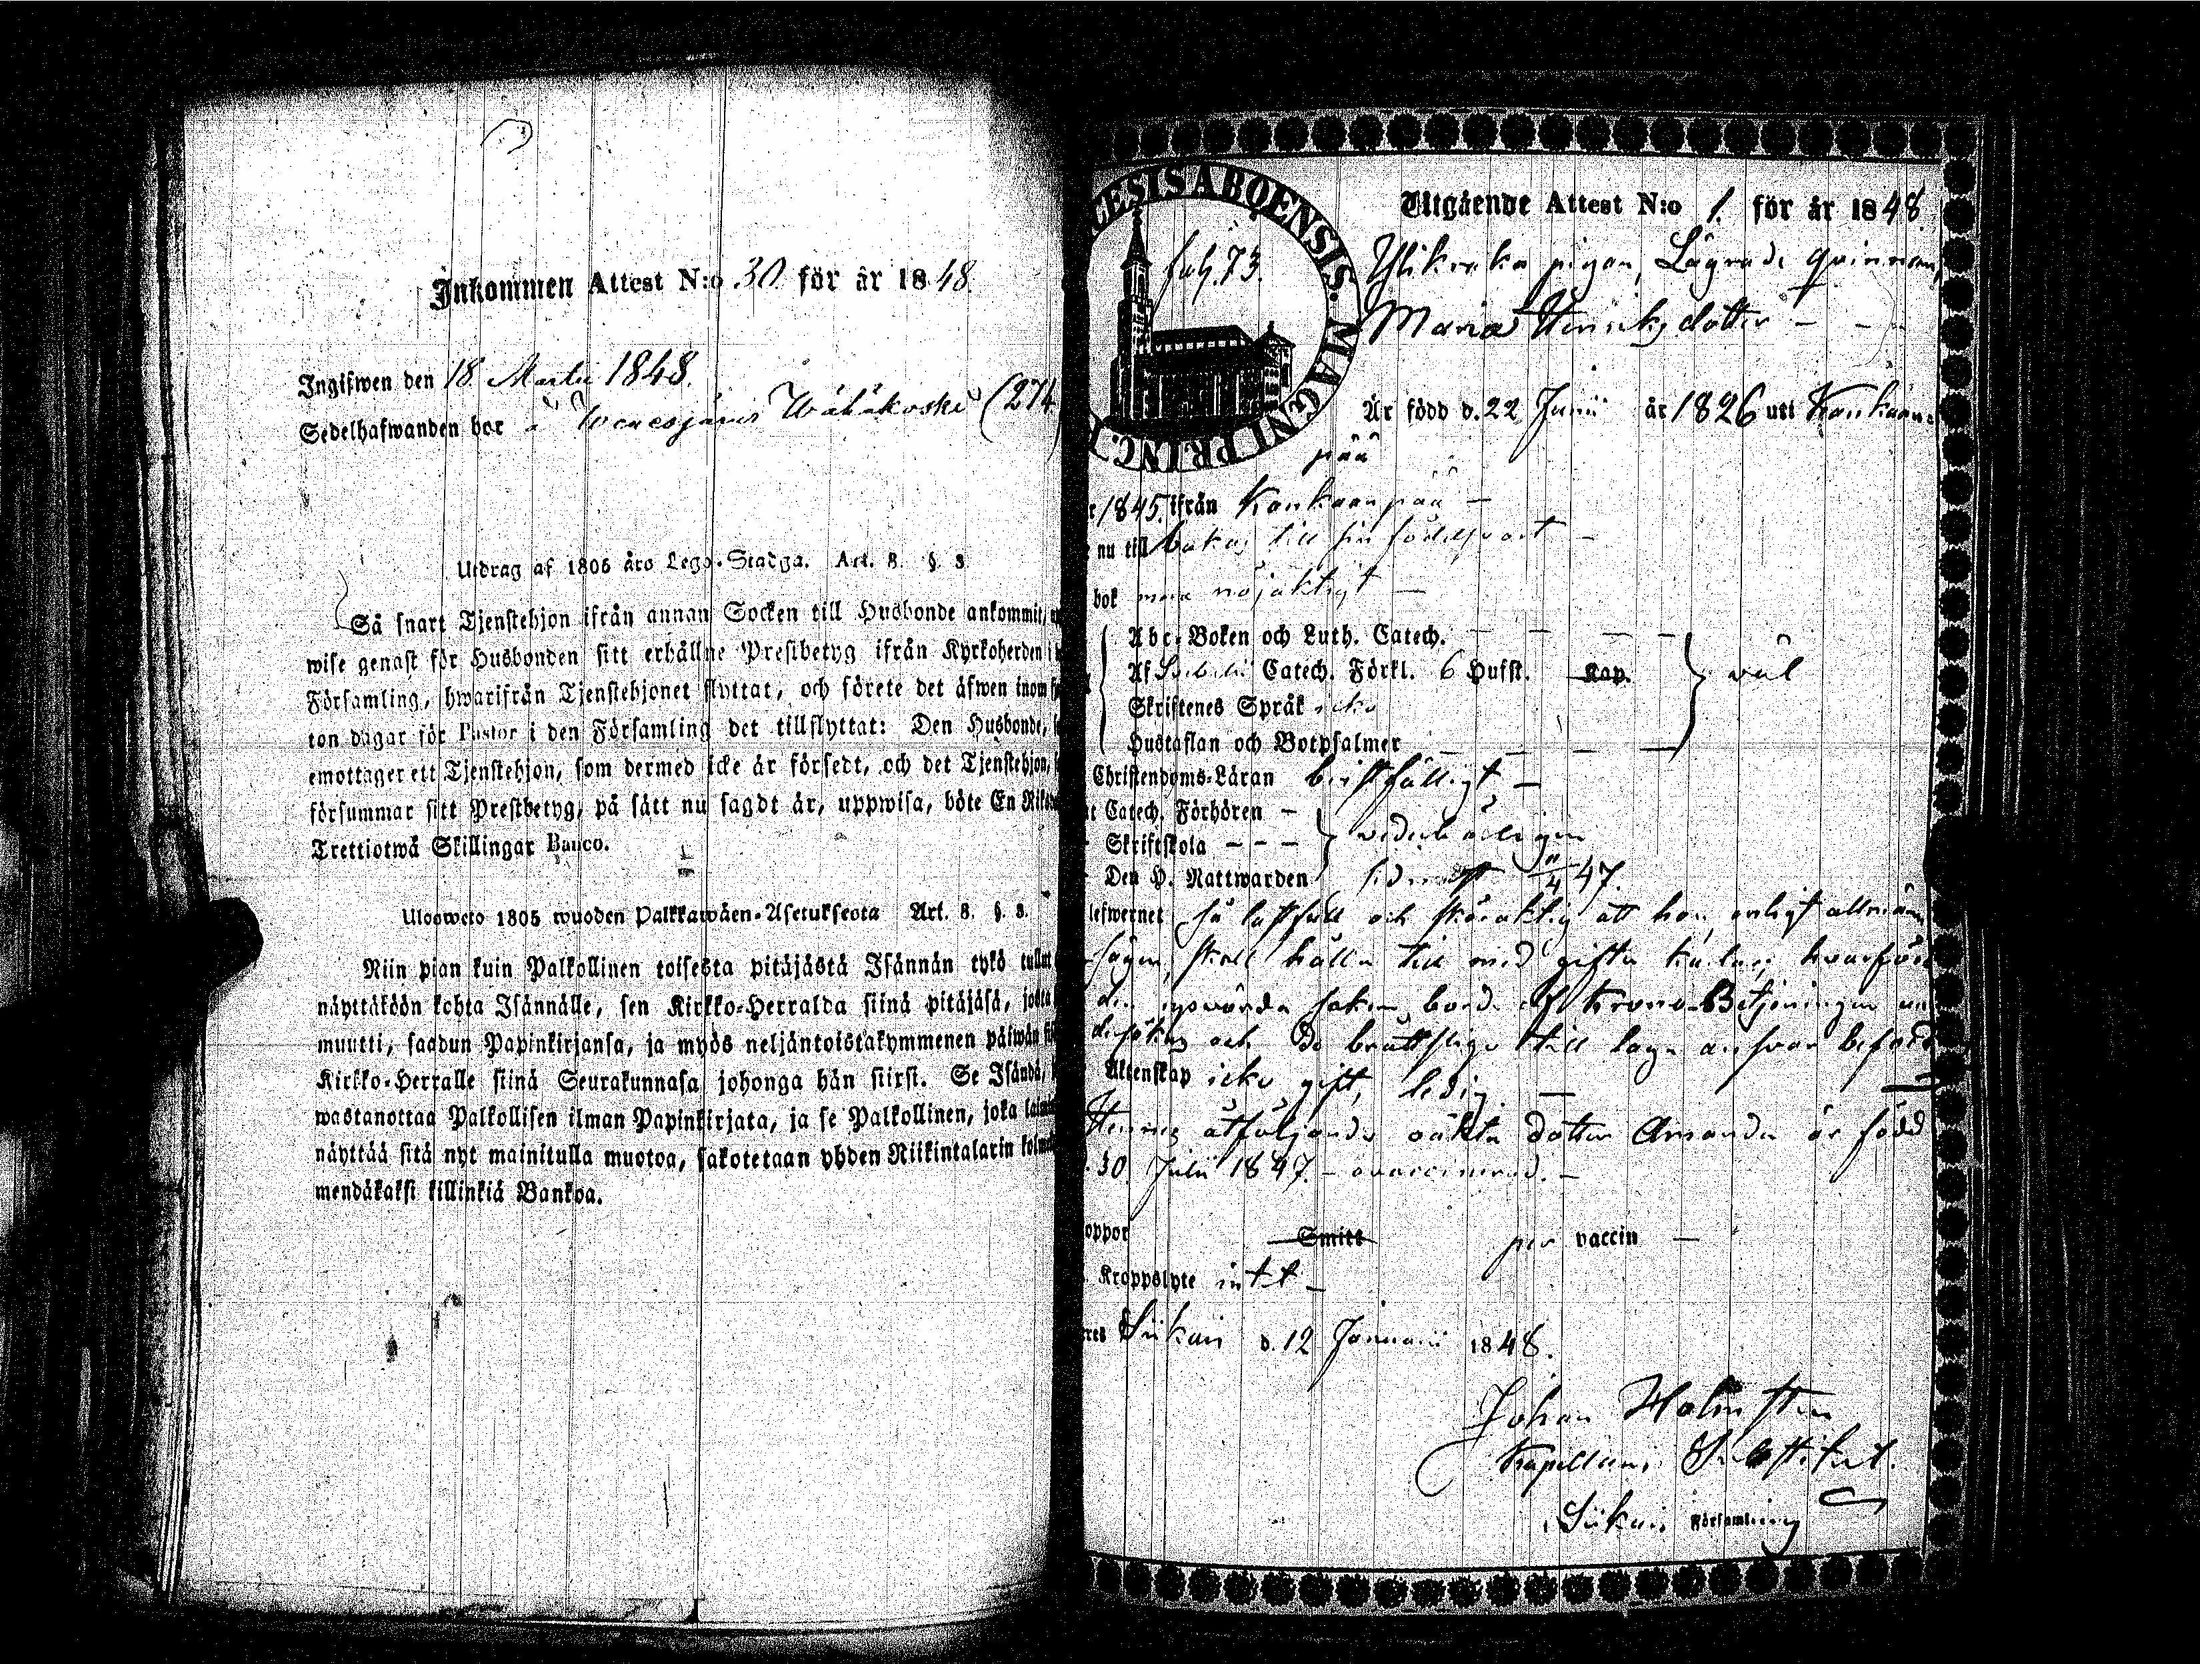 Inkommen Attest N:o 30 för år 1848.
Ingifwen den 18 Martii 1848.
Sedelhafwanden bor å Wenesjärvi Wähäkoski (274
Utdrag af 1805 års Lego-Stadga. Art. 8. §. 3.
Så snart Tjenstehjon ifrån annan Socken till Husbonde ankommit,
wise genast för Husbonden sitt erhållne Prestbetyg ifrån Kyrkoherden i
Församling, hwarifrån Tjenstehjonet flyttat, och förete det äfwen inom
ton dagar för Pastor i den Församling det tillflyttat: Den Husbonde,
emottager ett Tjenstehjon, som dermed icke är försedt, och det Tjenstehjon,
försummar sitt Prestbetyg, på sätt nu sagdt är, uppwisa, böte En Riks
Trettiotwå Skillingar Banco.
Ulosweto 1805 wuoden Palkkawäen-Asetuksesta Art. 8. §. 3.
Niin pian kuin Palkollinen toisesta pitäjästä Isännän tykö tullut
näyttäköön kohta Isännälle, sen Kirkko-Herralda siinä pitäjäsä, josta
muutti, saadun Papinkirjansa, ja myös neljäntoistakymmenen päiwän
Kirkko-Herralle siinä Seurakunnasa johonga hän siirsi. Se Isändä,
wastanottaa Palkollisen ilman Papinkirjata, ja se Palkollinen, joka
näyttää sitä nyt mainitulla muotoa, sakotetaan yhden Riikintalarin kolme
mendäkaksi killinkiä Bankoa.
CESIS ABOENSIS. MAGNI PRINC.
fol. 73.
Utgående Attest N:o 1. för år 1848.
pigan, Lägrade qvinnan,
Maria Henricsdotter
Är född d. 22 Junii år 1826 uti Kankaan-
pää
1845. ifrån Kankaanpää
nu till bakas till sin födelseort
bok nöjaktigt
Abc-Boken och Luth. Catech.
Af Catech. Förkl. 6 Hufst. Kap. väl
Skriftenes Språk icke
Hustaflan och Botpsalmer
Christendoms-Läran
Catech. Förhören
Skriftskola vederbörligen
Den H. Nattwarden sednast 11/4 47.
lefwernet så och att hon, enligt allmän
sägen, skall hålla till med gifta karlar, hvarföre
den saken borde af Krono-Betjeningen un
dersökas och till laga ansvar
Äktenskap icke gift, ledig.
Hennes åtföljande oäkta dotter Amanda är född
30 Julii 1847. ovaccinerad.
oppor Smitt per vaccin
Kroppslyte intet
Siikais d. 12 Januarii 1848.
Johan Holmsten
Kapellans Substitut.
Siikais Församling